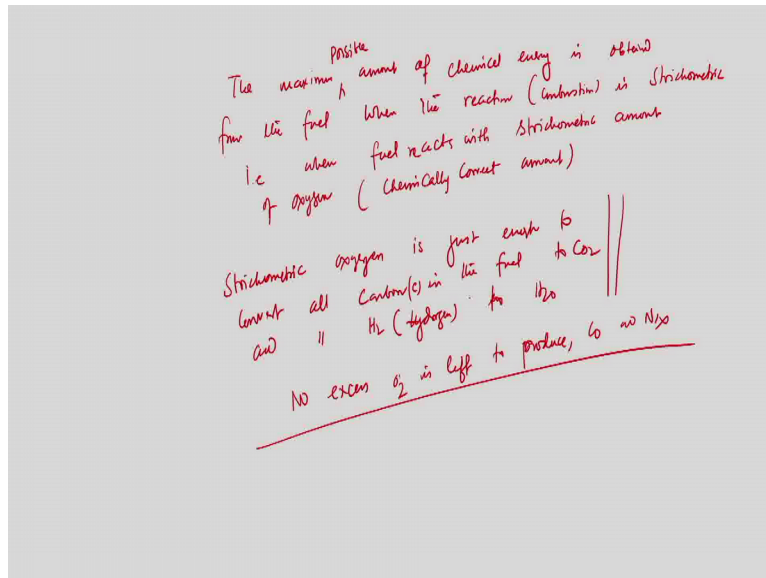 The maximum possible amount of chemical energy is obtained
from the fuel when the reaction (combustion) is Strichometric
i.e when fuel reacts with strichometric amount
of oxygen (Chemically Correct amount)
Strichometric oxygen is just enough to
Convert all Carbon(c) in the fuel to CO2
and " H2 (Hydrogen) to H2O
No excess O2 is left to produce, CO